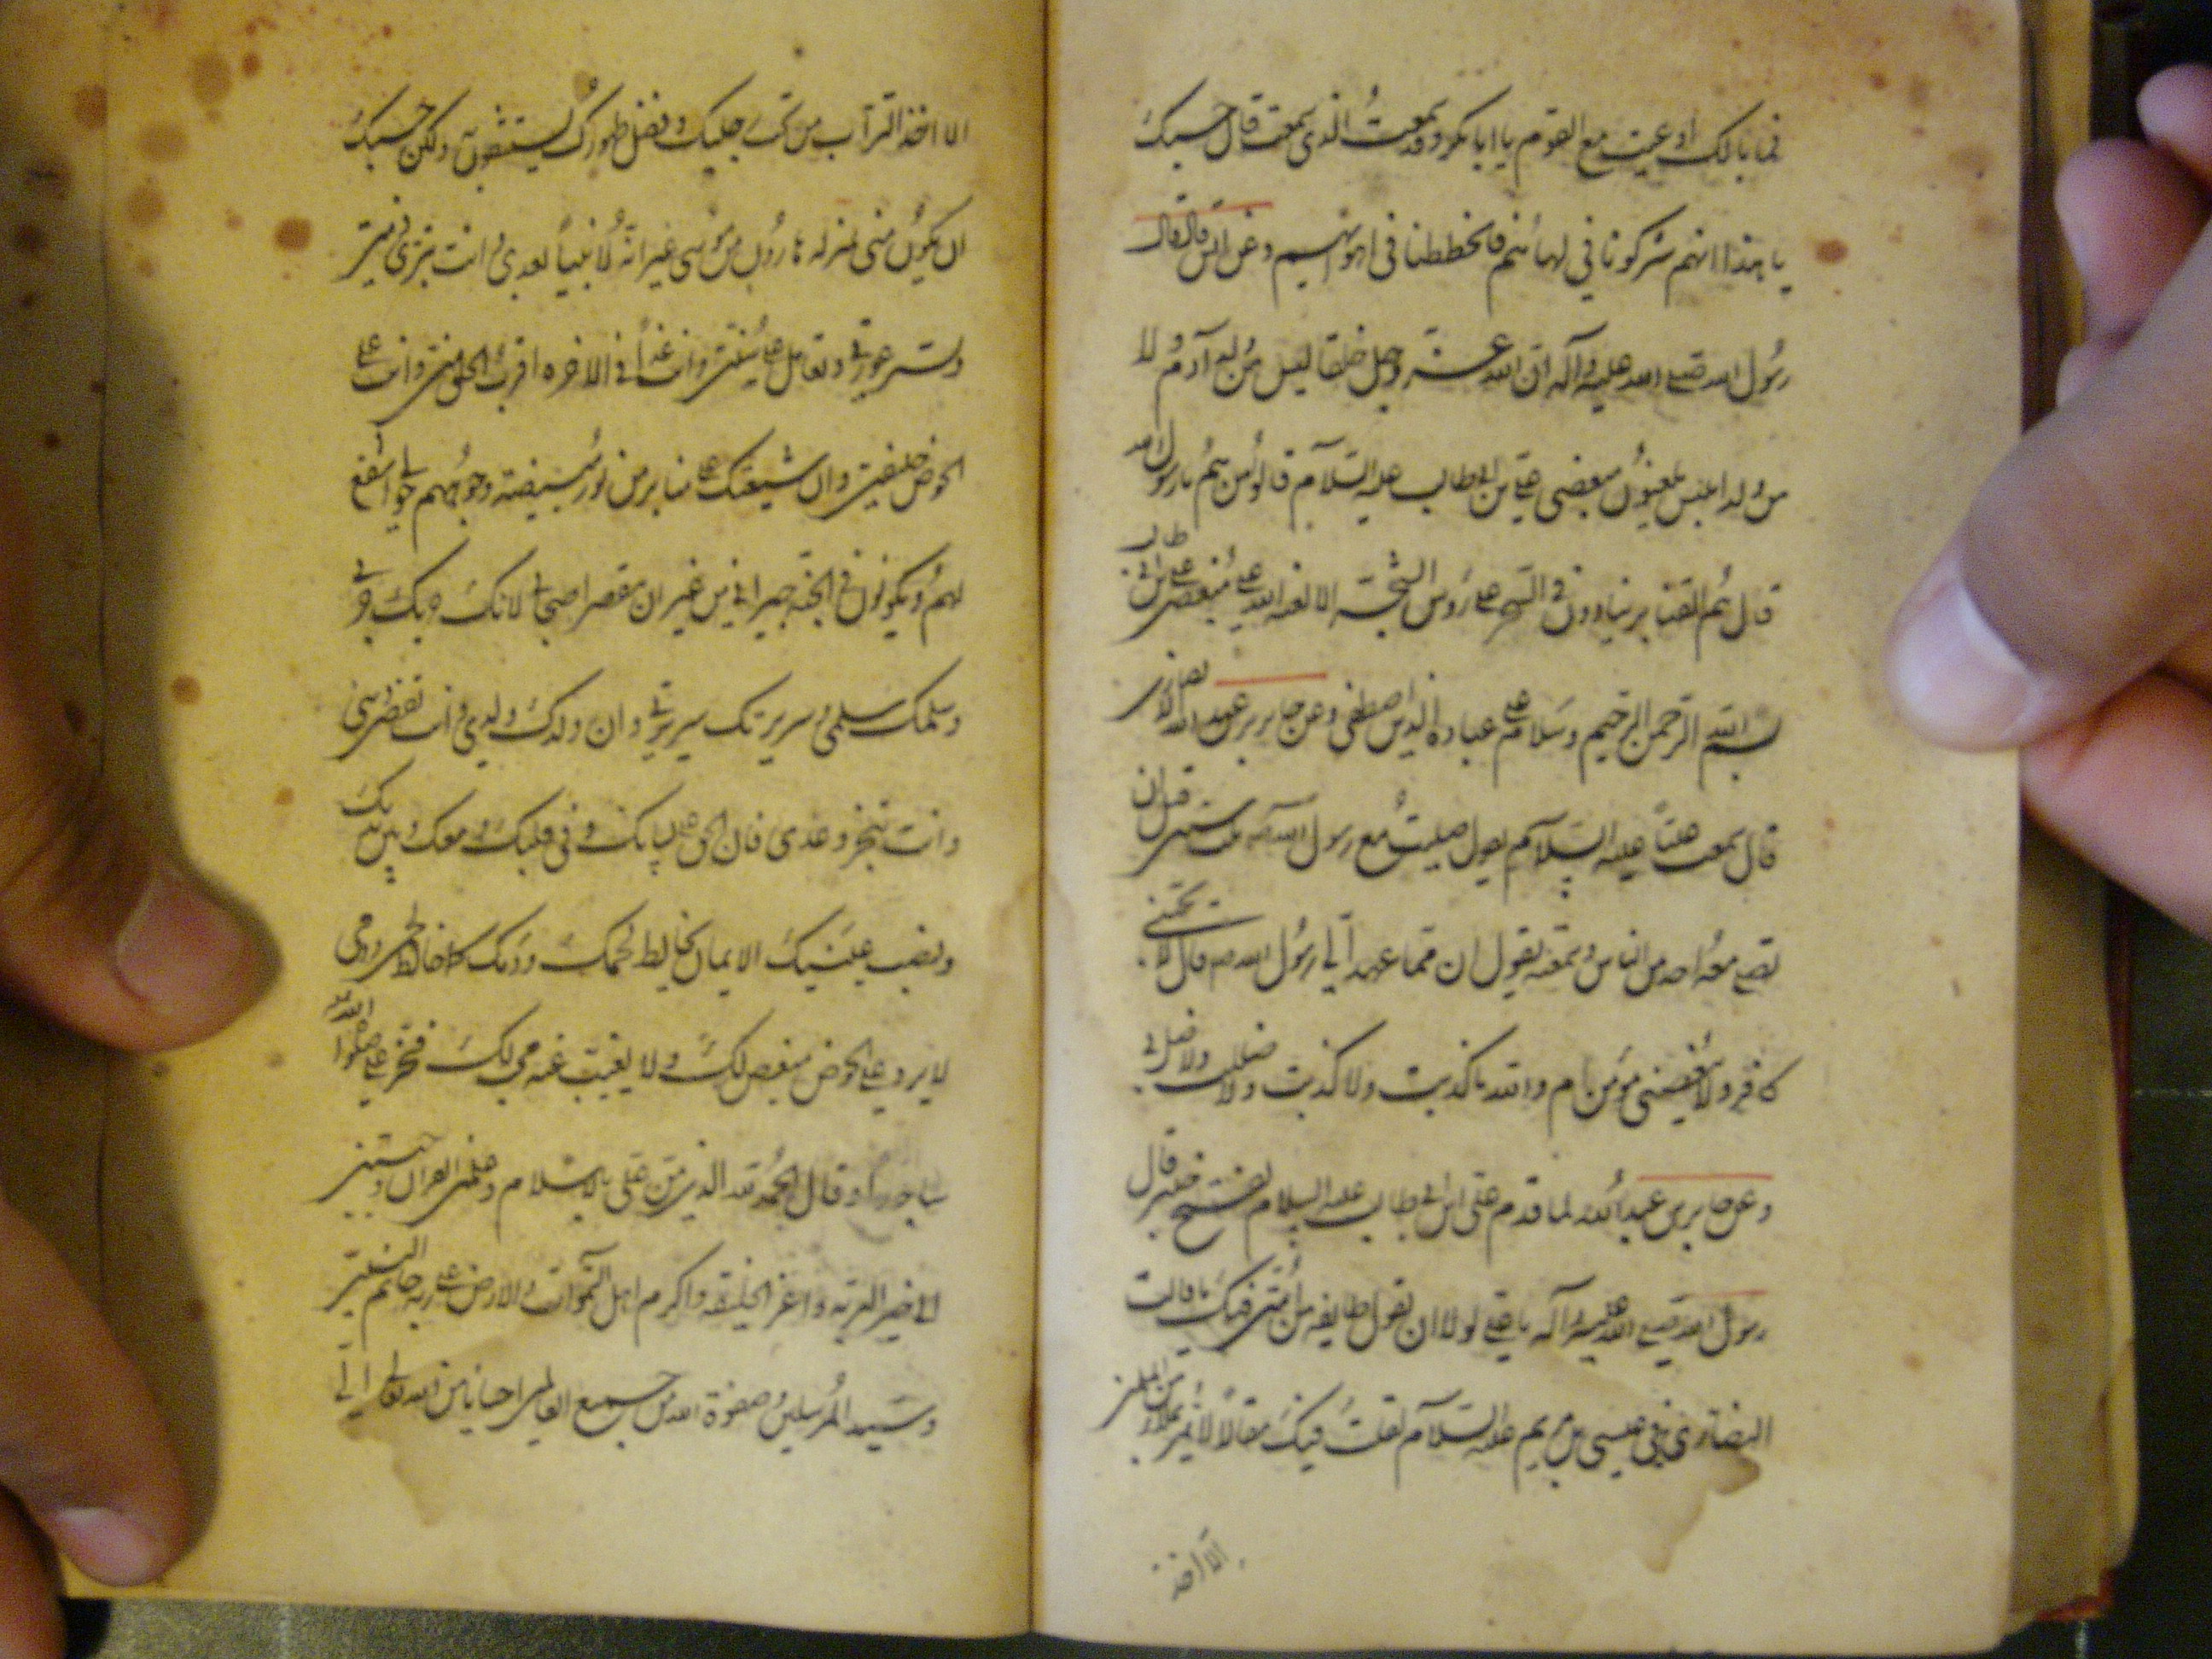 فما بالك أوعيت مع القوم يا ابا بكر وقد سمعت الذى سمعت قال حسبك
يا هذا انهم شركونا في فانحططنا فى وعن انس قال قال
رسول الله صلى الله عليه وآله ان الله عز وجل خلقا ليس من ولد آدم ولا
من ولد ابليس يلعنون مبغضى على بن ابى طالب عليه السلام قالوا من هم يا رسول الله
قال هم القنابر ينادون فى السحر على رؤس الشجر الا لعنه الله على مبغضى على بن ابى طالب
بسم الله الرحمن الرحيم وسلام على عباده الذين اصطفى وعن جابر بن عبد الله الانصارى
قال سمعت عليا عليه السلام يقول صليت مع رسول الله ص قبل ان
يصلى معه احد من الناس وسمعته يقول ان مما عهد الى رسول الله ص قال لا يحبنى
كافر ولا يبغضنى مؤمن والله ما كذبت ولا كذبت ولا ضللت ولا ضل بى
وعن جابر بن عبد الله لما قدم على بن ابى طالب عليه السلام بفتح خيبر قال
رسول الله صلى الله عليه وآله يا على لولا ان تقول طايفه من امتى فيك ما قالت
النصارى فى عيسى بن مريم عليه السلام لقلت فيك مقالا لا تمر بملاء من المسلمين
الا اخذ
الا اخذ التراب من تحت رجليك وفضل طهورك يستشفون به ولكن حسبك
ان يكون منى بمنزلة هارون من موسى غير انه لا نبيا بعدى وانت تبرئ ذمتى
وتستر عورتى وتقاتل على سنتى وانت غدا فى الاخره اقرب الخلق منى وانت على
الحوض خليفتى وان شيعتك على منابر من نور مبيضة وجوههم حولى اشفع
لهم ويكونون فى الجنه جيرانى لان حربك حربى
وسلمك سلمى وسريرتك سريرتى وان ولدك ولدى وانت تقضى دينى
وانت تنجز وعدى فان الحق على لسانك وفى قلبك ومعك وبين يديك
ونصب عينيك الايمان يخالط لحمك ودمك كما خالط لحمى ودمى
لا يرد على الحوض مبغض لك ولا يغيب عنه محب لك فخر على صلوات الله عليه
ساجدا وقال الحمد لله الذى من على بالاسلام وعلمنى القران وحببنى
الى خير البريه واعز الخليقه واكرم اهل السموات والارض على ربه خاتم النبيين
وسيد المرسلين وصفوة الله من جميع العالمين احسانا من الله تعالى الى